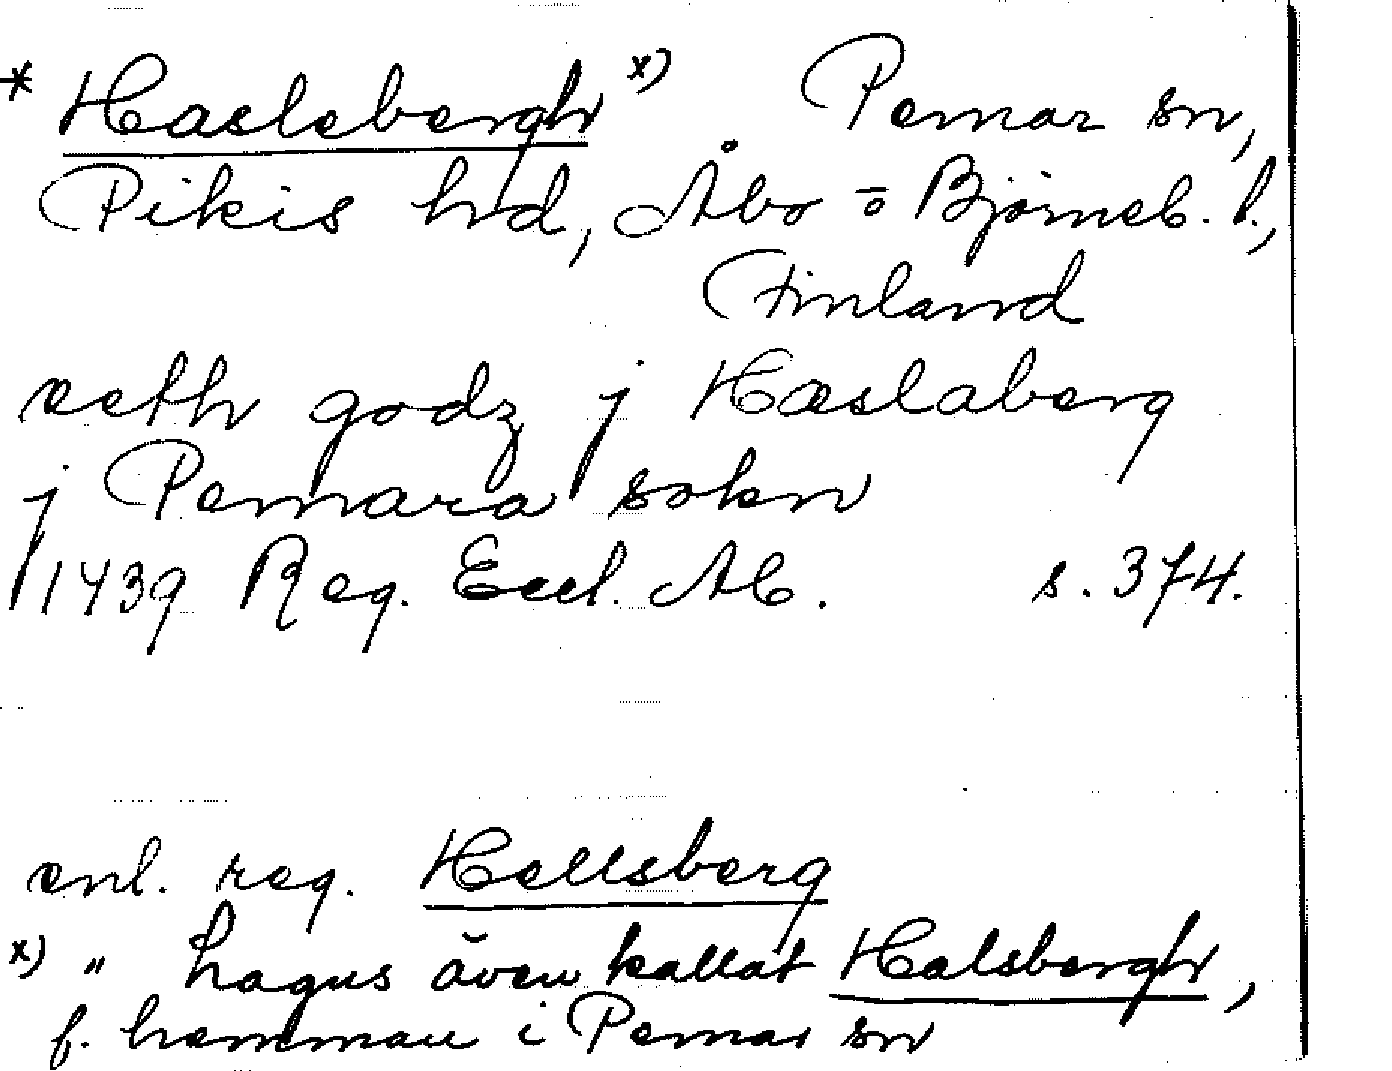 * Haslebergh x) Pemar sn,
Pikis hd, Åbo o Björneb. l.,
Finland
eeth godz j Hæslaberg
j Pemara sokn
1439 Reg. Eccl. Ab. s. 374.
enl. reg. Hellsberg
x) " Lagus även kallat Halsbergh,
f. hemman i Pemar sn